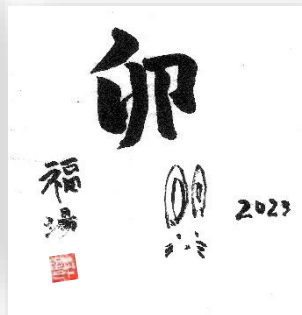 卯
福
湯
2023